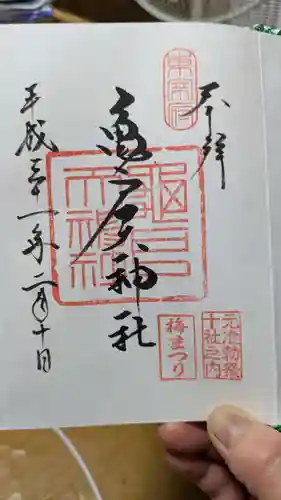 奉拝
東宰府
亀戸神社
龜戸
天神社
平成三十一年二月十日
元准勅祭
十社之内
梅まつり